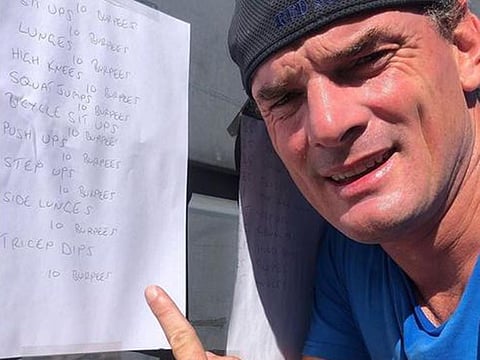 SIT UPS
10 BURPEES
LUNGES
10 BURPEES
HIGH KNEES
10 BURPEES
SQUAT JUMPS
10 BURPEES
BICYCLE SIT UPS
10 BURPEES
PUSH UPS
10 BURPEES
STEP UPS
10 BURPEES
SIDE LUNGES
10 BURPEES
TRICEP DIPS
10 BURPEES